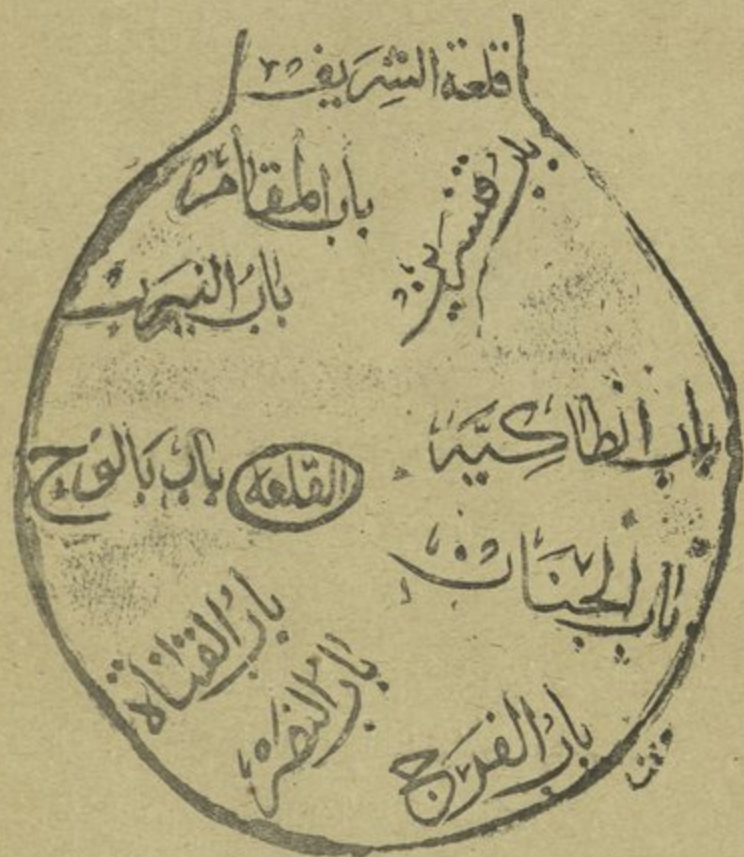 قلعة الشريف
باب المقام
باب قنسرين
باب النيرب
باب انطاكية
باب بالوج
القلعة
باب الجنان
باب القناة
باب النصر
باب الفرج